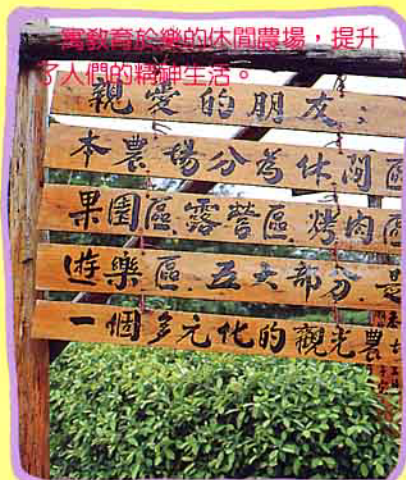 寓教育於樂的休閒農場，提升
了人們的精神生活。
親愛的朋友：
本農場分為休閒區
果園區.露營區.烤肉區
遊樂區.五大部分.是
一個多元化的觀光農